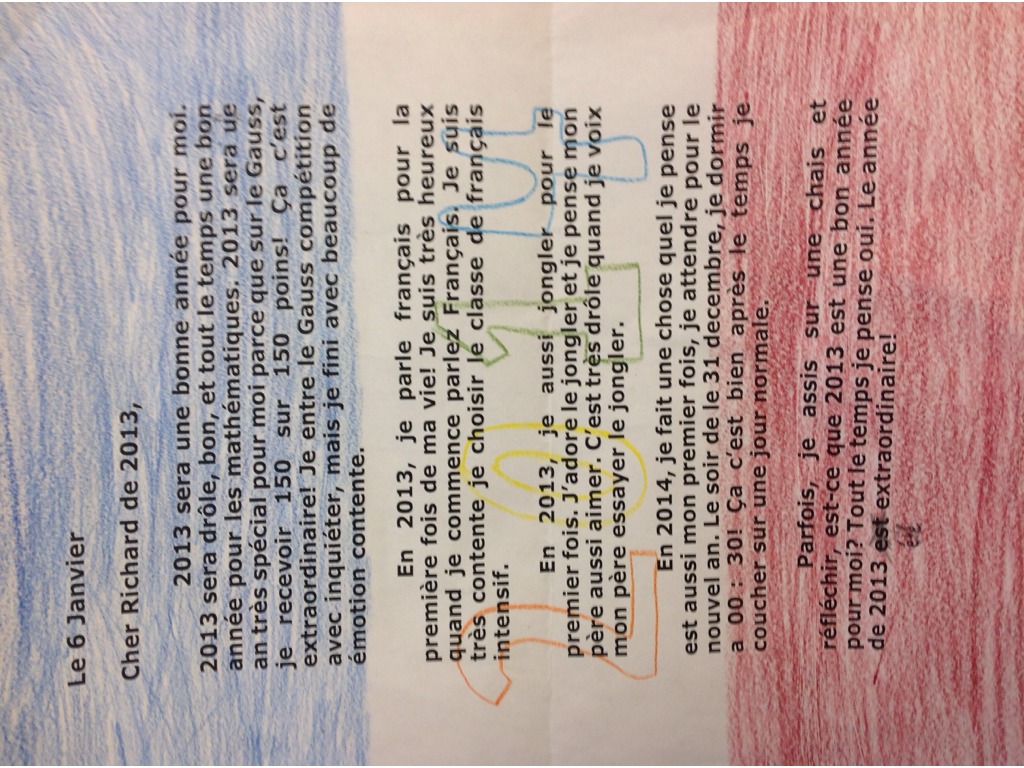 Le 6 Janvier
Cher Richard de 2013,
2013 sera une bonne année pour moi.
2013 sera drôle, bon, et tout le temps une bon
année pour les mathématiques. 2013 sera ue
an très spécial pour moi parce que sur le Gauss,
je recevoir 150 sur 150 poins! Ça c'est
extraordinaire! Je entre le Gauss compétition
avec inquiéter, mais je fini avec beaucoup de
émotion contente.
En 2013, je parle français pour la
première fois de ma vie! Je suis très heureux
quand je commence parlez Français. Je suis
très contente je choisir le classe de français
intensif.
En 2013, je aussi jongler pour le
premier fois. J'adore le jongler et je pense mon
père aussi aimer. C'est très drôle quand je voix
mon père essayer le jongler.
En 2014, je fait une chose quel je pense
est aussi mon premier fois, je attendre pour le
nouvel an. Le soir de le 31 decembre, je dormir
a 00 : 30! Ça c'est bien après le temps je
coucher sur une jour normale.
Parfois, je assis sur une chais et
réfléchir, est-ce que 2013 est une bon année
pour moi? Tout le temps je pense oui. Le année
de 2013 est extraordinaire!
2014